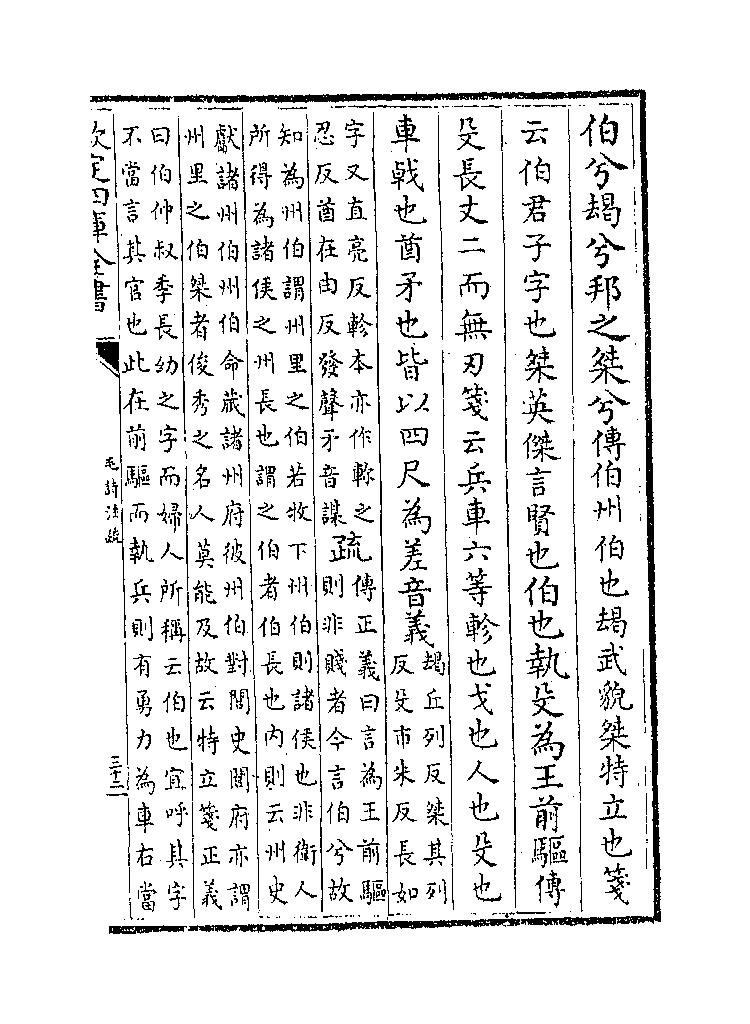 伯兮朅兮邦之桀兮傳伯州伯也朅武貌桀特立也箋
云伯君子字也桀英傑言賢也伯也執殳為王前驅傳
殳長丈二而無刃箋云兵車六等軫也戈也人也殳也
車戟也酋矛也皆以四尺為差音義
朅丘列反桀其列
反殳市朱反長如
字又直亮反軫本亦作之
忍反酋在由反發聲矛音謀
疏
傳正義曰言為王前驅
則非賤者今言伯兮故
知為州伯謂州里之伯若牧下州伯則諸侯也非衛人
所得為諸侯之州長也謂之伯者伯長也內則云州史
獻諸州伯州伯命藏諸州府彼州伯對閭史閭府亦謂
州里之伯桀者俊秀之名人莫能及故云特立箋正義
曰伯仲叔季長幼之字而婦人所稱云伯也宜呼其字
不當言其官也此在前驅而執兵則有勇力為車右當
欽定四庫全書
毛詩注疏
三十二